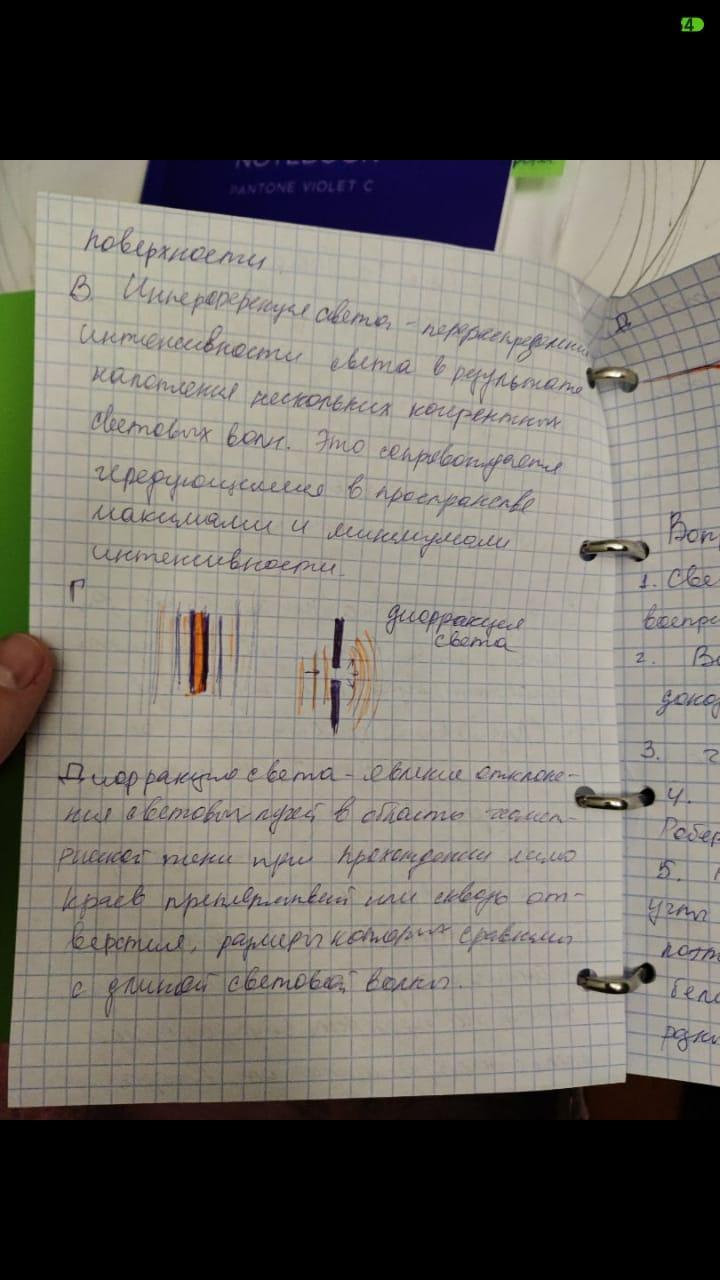 4
NOTEBOOK
PANTONE VIOLET C
поверхности
В. Интерференция света - перераспределение
интенсивности света в результате
наложения нескольких когерентных
световых волн. Это сопровождается
чередующимися в пространстве
максимами и минимумами
интенсивности.
Г
дифракция
света
Дифракция света - явление отклоне-
ния световых лучей в область геомет-
рической тени при прохождении мимо
краев препятствий или сквозь от-
верстия, размеры которых сравнимы
с длиной световой волны.
Д
Воп
1. Све
воспри
2. Во
3.
4.
Робер
5.
углы
бело